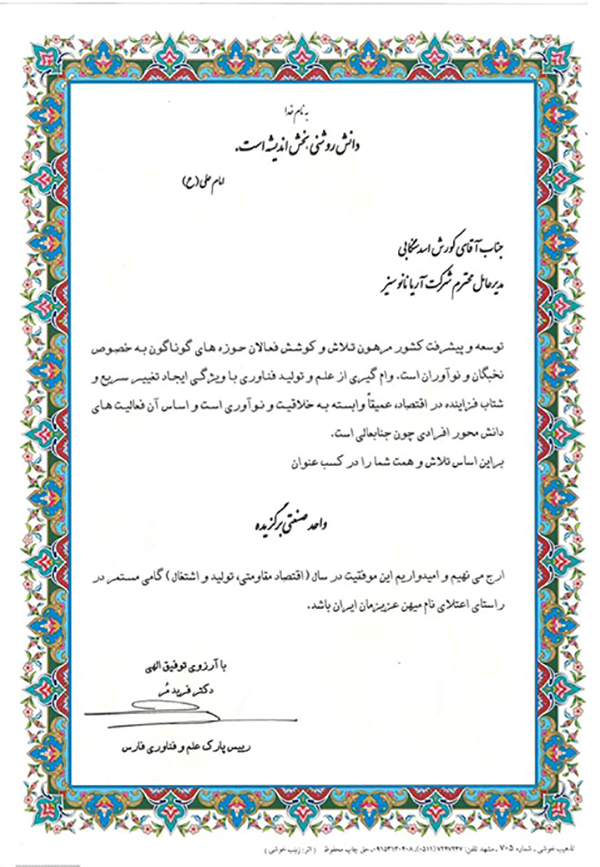 به نام خدا
دانش روشنی بخش اندیشه است.
امام علی (ع)
جناب آقای کورش اسدسنگابی
مدیرعامل محترم شرکت آریا نانو سنیز
توسعه و پیشرفت کشور مرهون تلاش و کوشش فعالان حوزه های گوناگون به خصوص
نخبگان و نوآوران است. وام گیری از علم و تولید فناوری با ویژگی ایجاد تغییر سریع و
شتاب فزاینده در اقتصاد، عمیقاً وابسته به خلاقیت و نوآوری است و اساس آن فعالیت های
دانش محور افرادی چون جنابعالی است.
براین اساس تلاش و همت شما را در کسب عنوان
واحد صنعتی برگزیده
ارج می نهیم و امیدواریم این موفقیت در سال (اقتصاد مقاومتی، تولید و اشتغال) گامی مستمر در
راستای اعتلای نام میهن عزیزمان ایران باشد.
با آرزوی توفیق الهی
دکتر فرید مُر
رییس پارک علم و فناوری فارس
تذهیب خوشی ـ شماره ۷۰۵ ـ مشهد تلفن: ۷۲۴۷۲۴۷ (۰۵۱۱) ۰۹۱۵۳۱۳۰۴۰۸ ـ حق چاپ محفوظ (اثر: زینب خوشی)